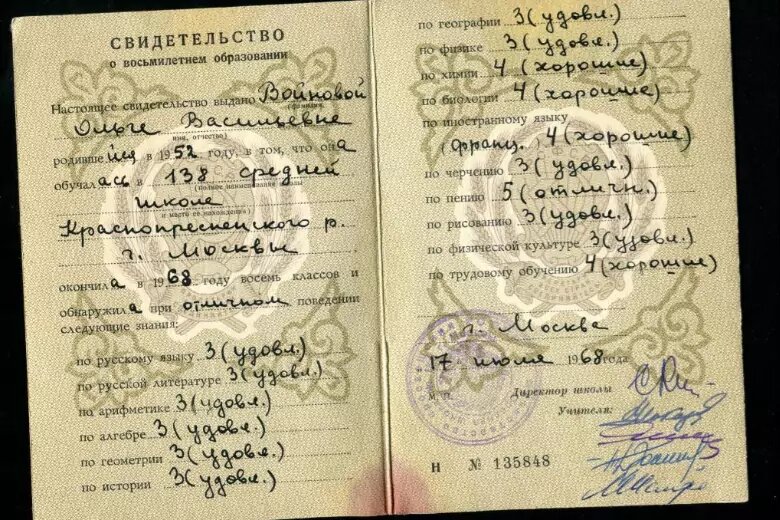 СВИДЕТЕЛЬСТВО
о восьмилетнем образовании
Настоящее свидетельство выдано Войновой
(фамилия,
Ольге Васильевне
имя, отчество)
родившейся в 1952 году, в том, что она
обучалась в 138 средней
(полное наименование школы
школе
и место ее нахождения)
Краснопресненского р.
г. Москвы
окончила в 1968 году восемь классов и
обнаружила при отличном поведении
следующие знания:
по русскому языку 3 (удовл.)
по русской литературе 3 (удовл.)
по арифметике 3 (удовл.)
по алгебре 3 (удовл.)
по геометрии 3 (удовл.)
по истории 3 (удовл.)
по географии 3 (удовл.)
по физике 3 (удовл.)
по химии 4 (хорошие)
по биологии 4 (хорошие)
по иностранному языку
(франц.) 4 (хорошие)
по черчению 3 (удовл.)
по пению 5 (отличн.)
по рисованию 3 (удовл.)
по физической культуре 3 (удовл.)
по трудовому обучению 4 (хорошие)
г. Москва
17 июля 1968 года
М. П.
Директор школы
Учителя:
Н № 135848